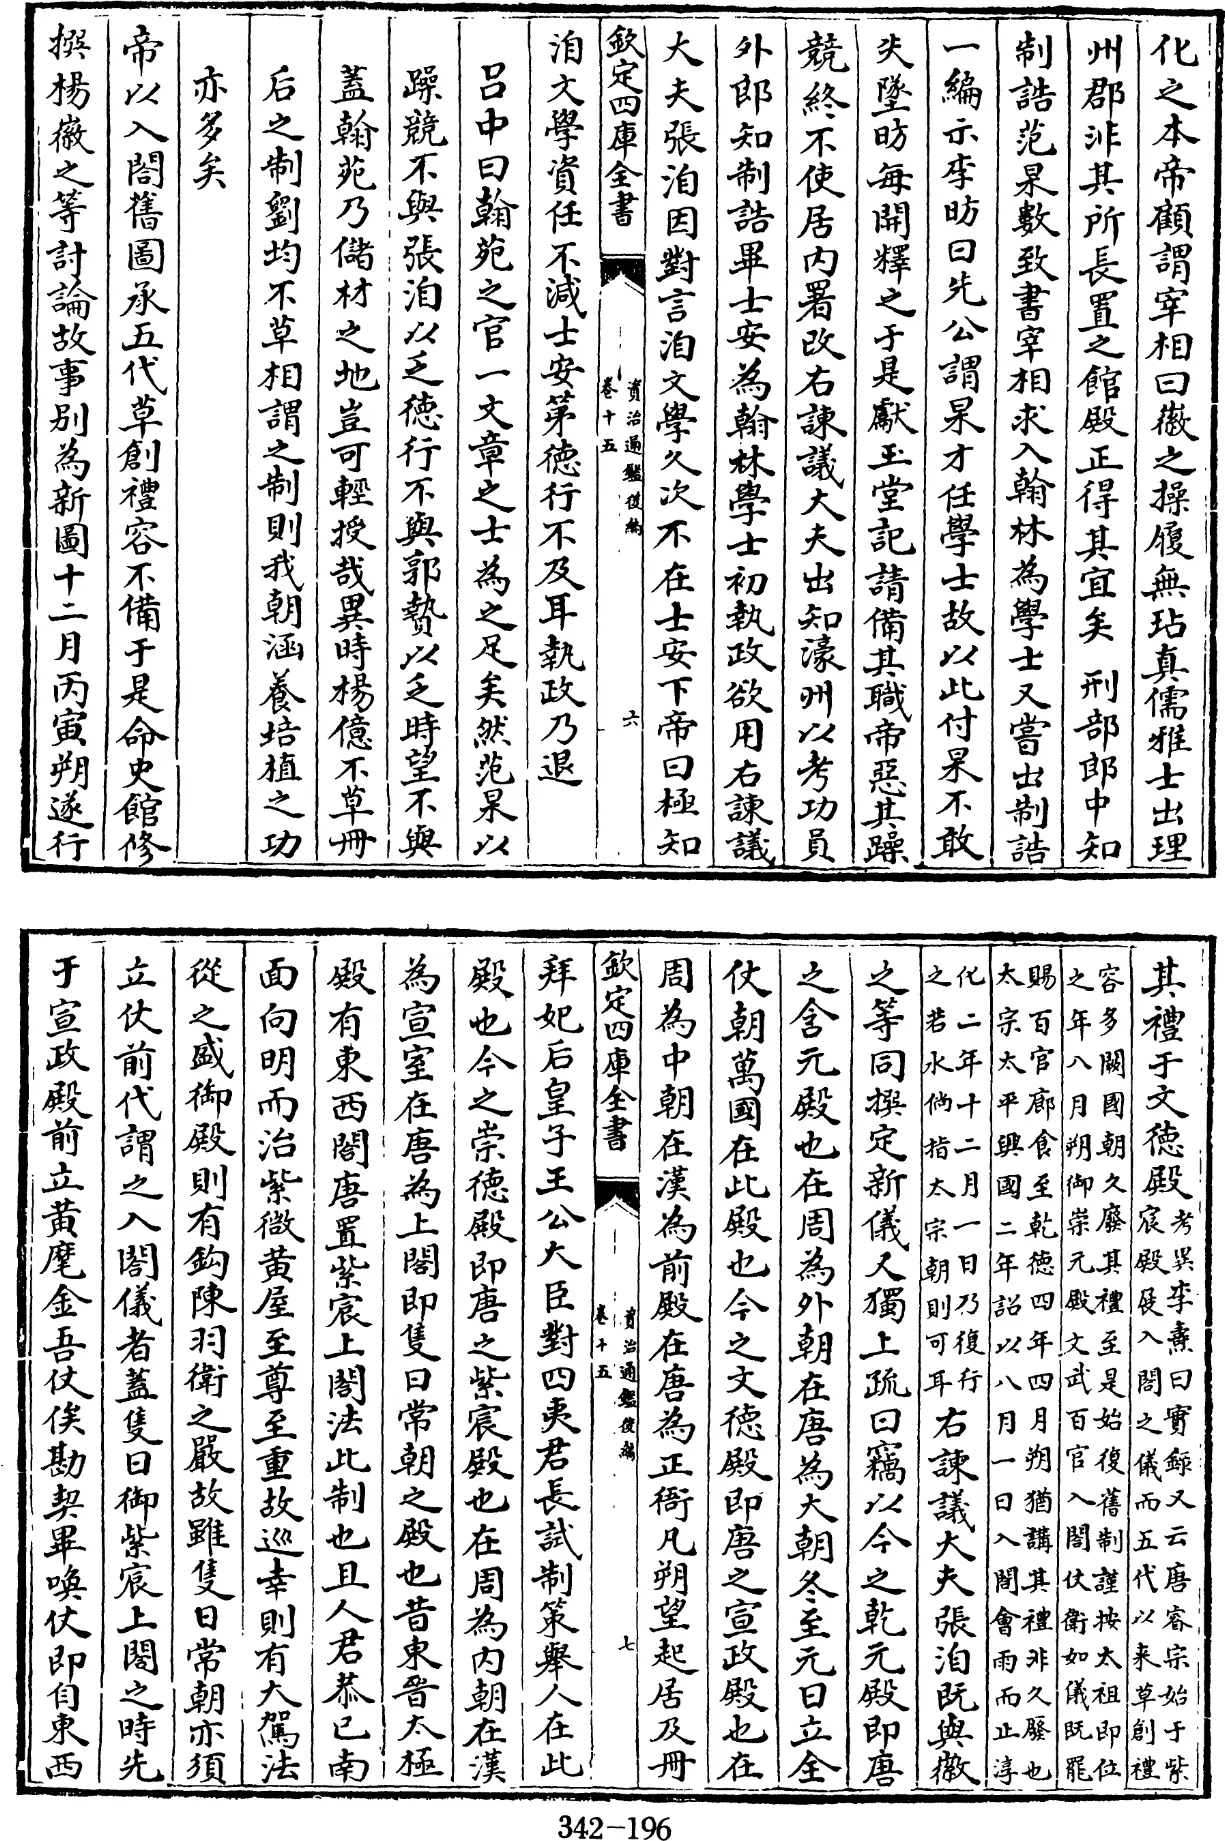 化之本帝顧謂宰相曰徽之操履無玷真儒雅士出理
州郡非其所長置之館殿正得其宜矣　刑部郎中知
制誥范杲數致書宰相求入翰林為學士又嘗出制誥
一編示李昉曰先公謂杲才任學士故以此付杲不敢
失墜昉每開釋之于是獻玉堂記請備其職帝惡其躁
競終不使居內署改右諫議大夫出知濠州以考功員
外郎知制誥畢士安為翰林學士初執政欲用右諫議
大夫張洎因對言洎文學久次不在士安下帝曰極知
欽定四庫全書
資治通鑑後編
卷十五
六
洎文學資任不減士安第德行不及耳執政乃退
呂中曰翰苑之官一文章之士為之足矣然范杲以
躁競不與張洎以乏德行不與郭贄以乏時望不與
蓋翰苑乃儲材之地豈可輕授哉異時楊億不草冊
后之制劉均不草相謂之制則我朝涵養培植之功
亦多矣
帝以入閤舊圖承五代草創禮容不備于是命史館修
撰楊徽之等討論故事別為新圖十二月丙寅朔遂行
其禮于文德殿考異李燾曰實錄又云唐睿宗始于紫
宸殿展入閤之儀而五代以来草創禮
容多闕國朝久廢其禮至是始復舊制謹按太祖即位
之年八月朔御崇元殿文武百官入閤仗衛如儀既罷
賜百官廊食至乾德四年四月朔猶講其禮非久廢也
太宗太平興國二年詔以八月一日入閤會雨而止淳
化二年十二月一日乃復行
之若水倘指太宗朝則可耳右諫議大夫張洎既與徽
之等同撰定新儀又獨上疏曰竊以今之乾元殿即唐
之含元殿也在周為外朝在唐為大朝冬至元日立全
仗朝萬國在此殿也今之文德殿即唐之宣政殿也在
周為中朝在漢為前殿在唐為正衙凡朔望起居及冊
欽定四庫全書
資治通鑑後編
卷十五
七
拜妃后皇子王公大臣對四夷君長試制策舉人在此
殿也今之崇德殿即唐之紫宸殿也在周為內朝在漢
為宣室在唐為上閤即隻日常朝之殿也昔東晉太極
殿有東西閤唐置紫宸上閤法此制也且人君恭己南
面向明而治紫微黃屋至尊至重故巡幸則有大駕法
從之盛御殿則有鈎陳羽衛之嚴故雖隻日常朝亦須
立仗前代謂之入閤儀者蓋隻日御紫宸上閤之時先
于宣政殿前立黃麾金吾仗俟勘契畢喚仗即自東西
342-196